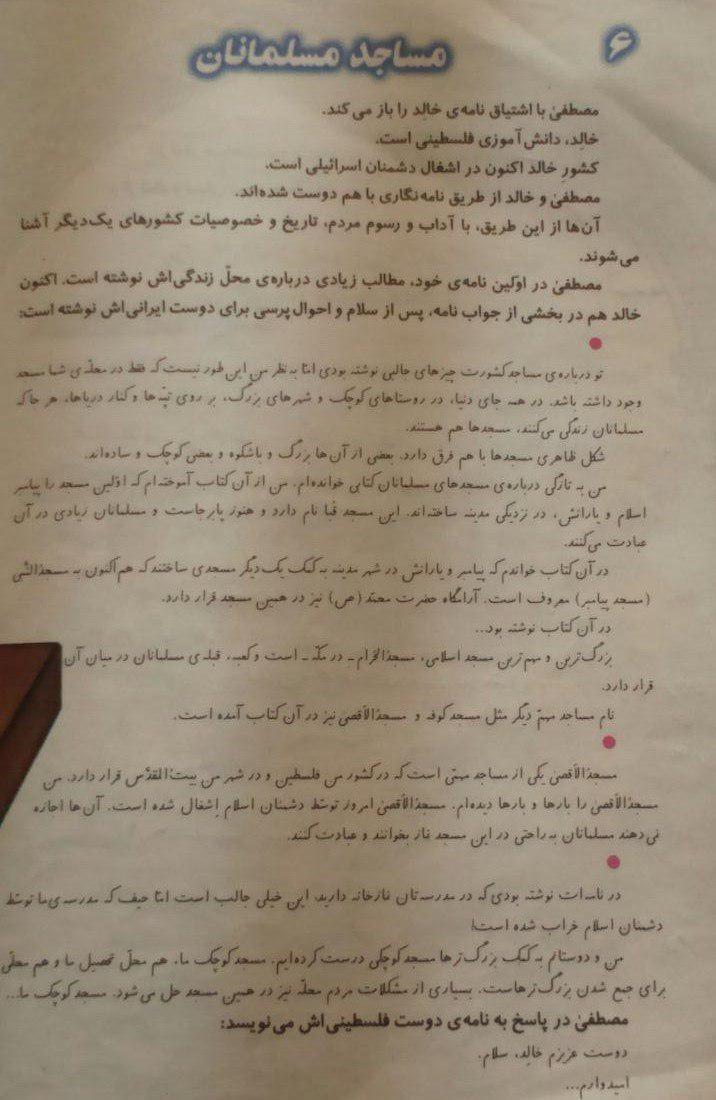 ۶
مساجد مسلمانان
مصطفیٰ با اشتیاق نامه‌ی خالِد را باز می‌کند.
خالِد، دانش‌آموزی فلسطینی است.
کشورِ خالد اکنون در اشغال دشمنان اسرائیلی است.
مصطفیٰ و خالد از طریق نامه‌نگاری با هم دوست شده‌اند.
آن‌ها از این طریق، با آداب و رسوم مردم، تاریخ و خصوصیات کشورهای یک‌دیگر آشنا
می‌شوند.
مصطفیٰ در اوّلین نامه‌ی خود، مطالب زیادی درباره‌ی محلّ زندگی‌اش نوشته است. اکنون
خالد هم در بخشی از جواب نامه، پس از سلام و احوال‌پرسی برای دوست ایرانی‌اش نوشته است:
تو درباره‌ی مساجد کشورت چیزهای جالبی نوشته بودی امّا به نظر من این طور نیست که فقط در محلّه‌ی شما مسجد
وجود داشته باشد. در همه جای دنیا، در روستاهای کوچک و شهرهای بزرگ، بر روی تپّه‌ها و کنار دریاها، هر جا که
مسلمانان زندگی می‌کنند، مسجدها هم هستند.
شکل ظاهری مسجدها با هم فرق دارد. بعضی از آن‌ها بزرگ و باشکوه و بعضی کوچک و ساده‌اند.
من به تازگی درباره‌ی مسجدهای مسلمانان کتابی خوانده‌ام. من از آن کتاب آموخته‌ام که اوّلین مسجد را پیامبر
اسلام و یارانش، در نزدیکی مدینه ساخته‌اند. این مسجد قُبا نام دارد و هنوز پابرجاست و مسلمانان زیادی در آن
عبادت می‌کنند.
در آن کتاب خواندم که پیامبر و یارانش در شهر مدینه به کمک یک‌دیگر مسجدی ساختند که هم‌اکنون به مسجدُالنّبی
(مسجد پیامبر) معروف است. آرامگاه حضرت محمّد (ص) نیز در همین مسجد قرار دارد.
در آن کتاب نوشته بود...
بزرگ‌ترین و مهم‌ترین مسجد اسلامی، مسجدُالحَرام ـ در مکّه ـ است و کعبه، قبله‌ی مسلمانان در میان آن
قرار دارد.
نام مساجد مهمّ دیگر مثل مسجد کوفه و مسجدُالاَقصیٰ نیز در آن کتاب آمده است.
مسجدُالاَقصیٰ یکی از مساجد مهمّی است که در کشور من فلسطین و در شهر من بیتُ‌المُقدّس قرار دارد. من
مسجدُالاَقصیٰ را بارها و بارها دیده‌ام. مسجدُالاَقصیٰ امروز توسّط دشمنان اسلام اِشغال شده است. آن‌ها اجازه
نمی‌دهند مسلمانان به راحتی در این مسجد نماز بخوانند و عبادت کنند.
در نامه‌ات نوشته بودی که در مدرسه‌تان نمازخانه دارید، این خیلی جالب است امّا حیف که مدرسه‌ی ما توسّط
دشمنان اسلام خراب شده است!
من و دوستانم به کمک بزرگ‌ترها مسجد کوچکی درست کرده‌ایم. مسجد کوچک ما، هم محلّ تحصیل ما و هم محلّی
برای جمع شدن بزرگ‌ترهاست. بسیاری از مشکلات مردم محلّه نیز در همین مسجد حل می‌شود. مسجد کوچک ما...
مصطفیٰ در پاسخ به نامه‌ی دوست فلسطینی‌اش می‌نویسد:
دوست عزیزم خالِد، سلام.
امیدوارم...